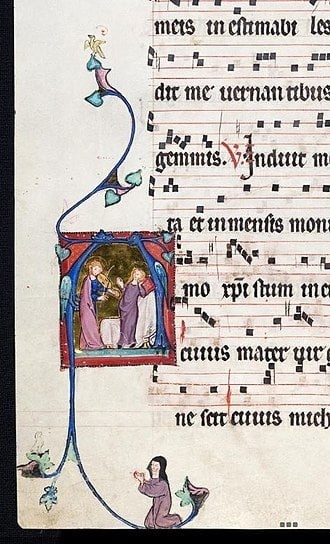 meis in estimabi les
dit me uernan tibus
gemmis. V. Induit m
ta et inmensis moni
mo xpi stum in e
cuius mater uir g
ne scit cuius mich